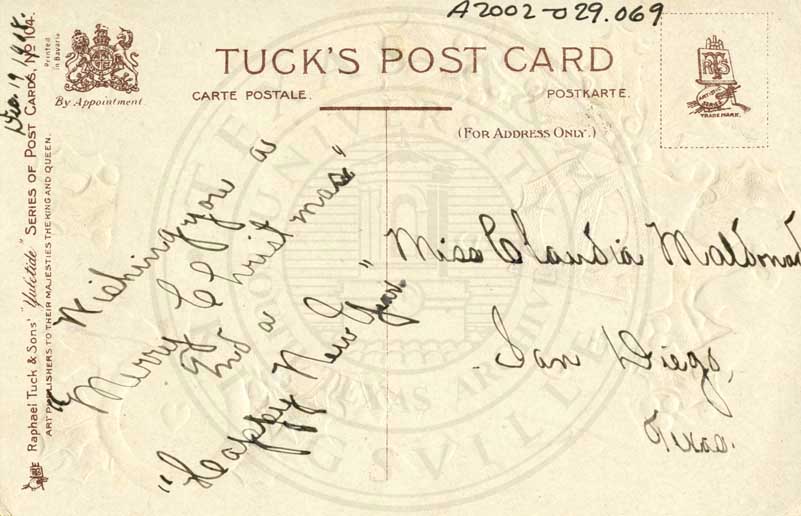 A2002-029.069
Printed
in Bavaria
By Appointment.
TUCK'S POST CARD
CARTE POSTALE.
POSTKARTE.
(FOR ADDRESS ONLY.)
TRADE MARK.
Raphael Tuck & Sons' "Yuletide" SERIES OF POST CARDS, No 104.
ART PUBLISHERS TO THEIR MAJESTIES THE KING AND QUEEN.
Dec. 19
Wishing you a
"Merry Christmas"
and a
"Happy New Year"
Miss Claudia
San Diego,
Texas.